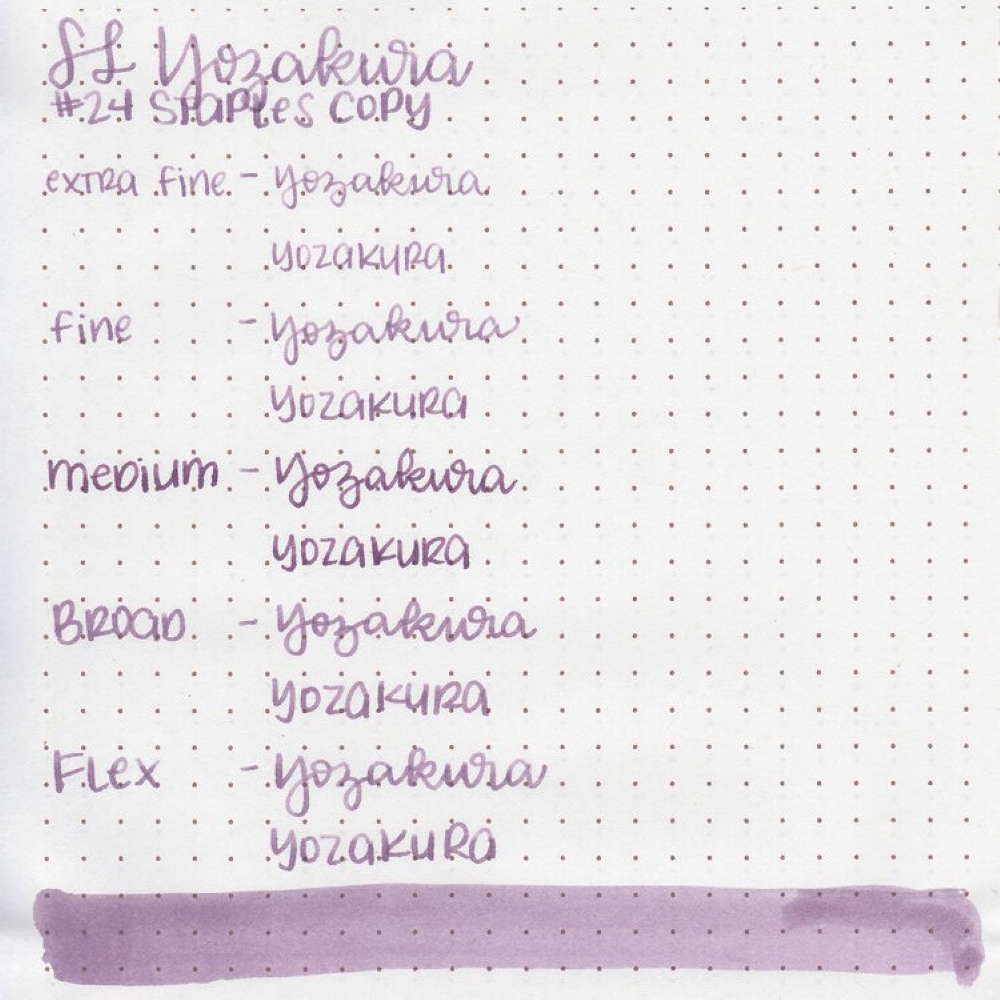 SL Yozakura
#24 Staples Copy
extra fine - Yozakura
Yozakura
fine - Yozakura
Yozakura
medium - Yozakura
Yozakura
Broad - Yozakura
Yozakura
Flex - Yozakura
Yozakura